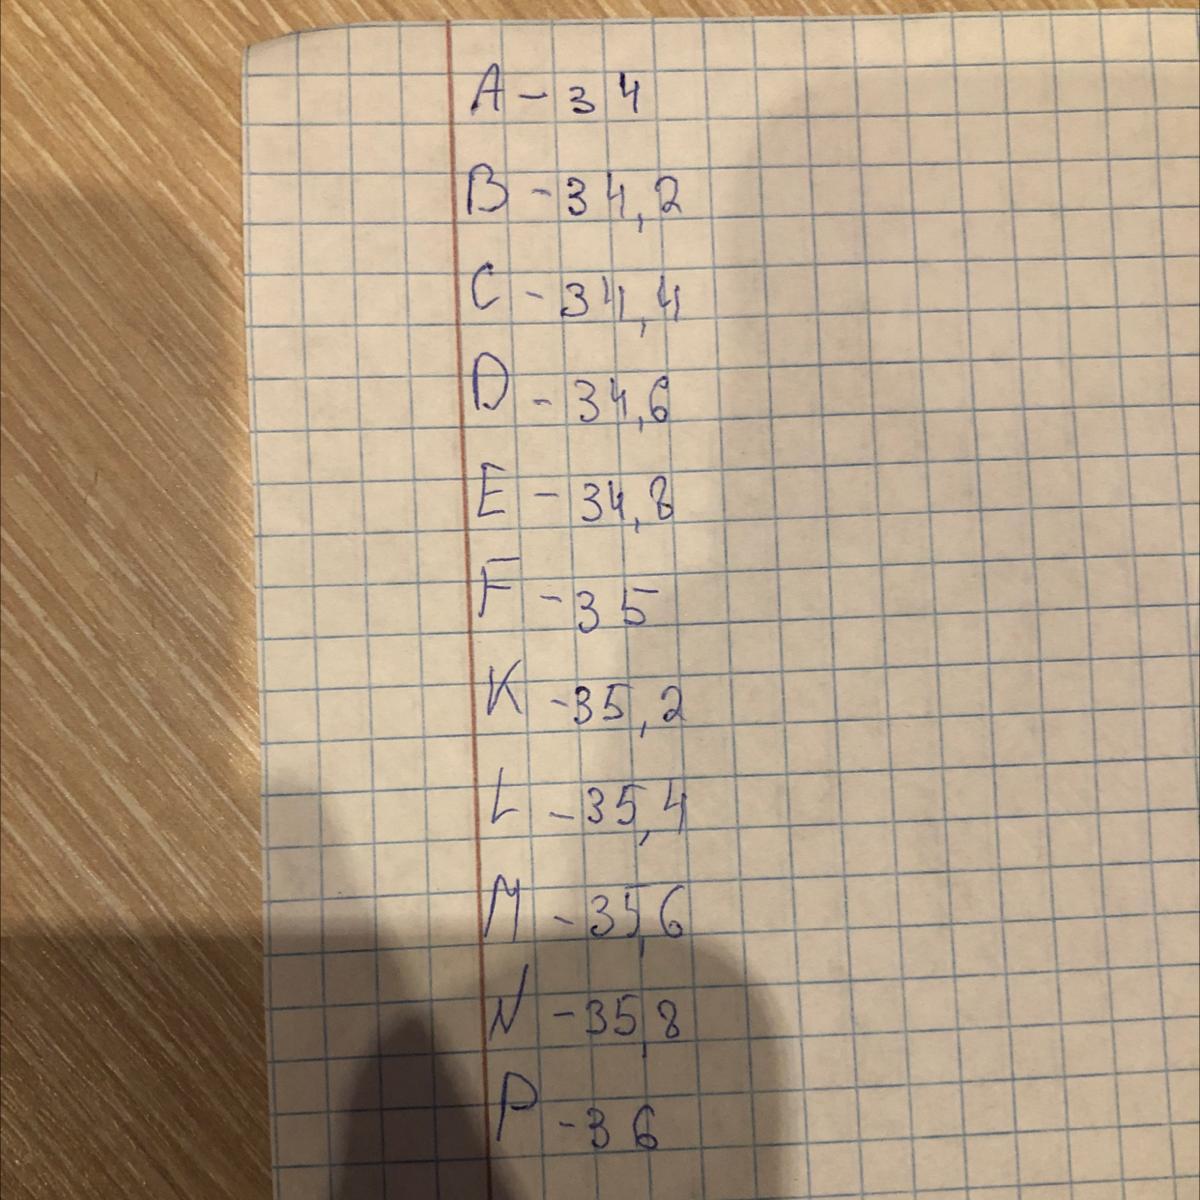 A - 34
B - 34,2
C - 34,4
D - 34,6
E - 34,8
F - 35
K - 35,2
L - 35,4
M - 35,6
N - 35,8
P - 36